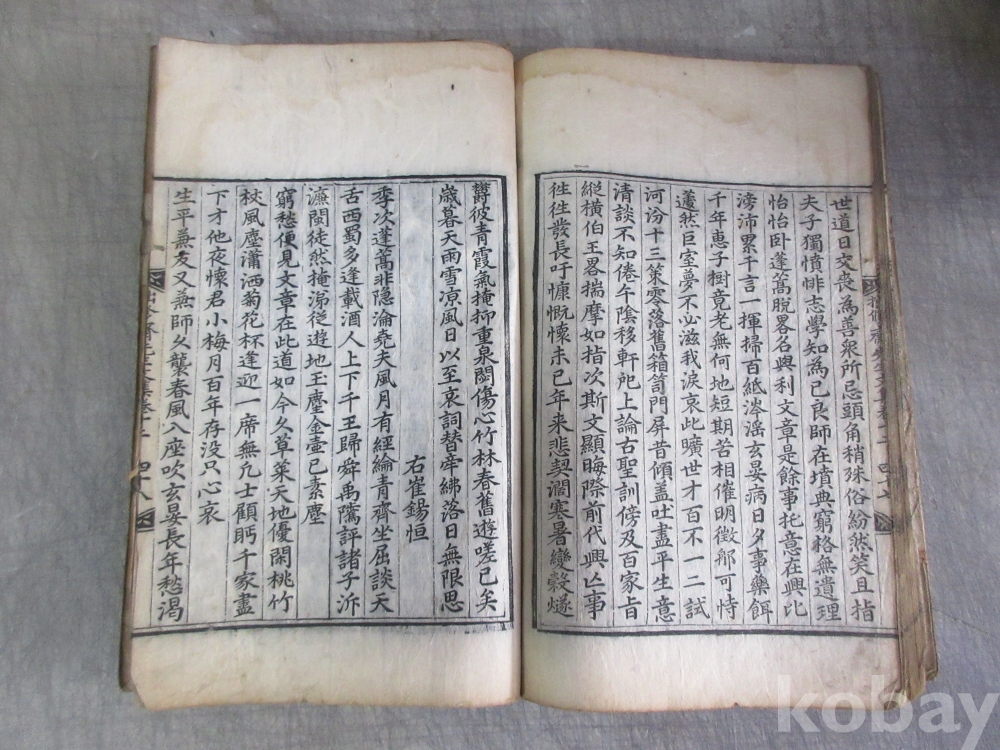 世道日交喪為善衆所忌頭角稍殊俗紛然笑且指
夫子獨憤悱志學知為已良師在墳典窮格無遺理
怡怡卧蓬蒿脫畧名與利文章是餘事托意在興比
滂沛累千言一揮掃百紙涔滛玄晏病日夕事藥餌
千年惠子樹竟老無何地短期苦相催明徵郁可恃
蘧然巨室夢不必滋我淚哀此曠世才百不一二試
河汾十三策零落舊箱笥門屏昔傾盖吐盡平生意
清談不知倦午陰移軒戺上論古聖訓傍及百家旨
縱橫伯王畧揣摩如指次斯文顯晦際前代興亾事
徃徃發長吁慷慨懷未已年来悲契濶寒暑變糓燧
欝彼青霞氣掩抑重泉閟傷心竹林春舊遊嗟已矣
歲暮天雨雪凉風日以至哀詞替牽紼落日無限思
右崔錫恒
季次蓬蒿非隐淪堯夫風月有經綸青齊坐屈談天
舌西蜀多逢載酒人上下千王歸舜禹隲評諸子泝
濂閩徒然掩涕從遊地王麈金壷已素塵
窮愁便見文章在此道如今久草菜天地優閑桃竹
杖風塵瀟洒菊花杯逢迎一席無凡士顧眄千家盡
下才他夜懷君小梅月百年存没只心哀
生平無友又無師久襲春風入座吹玄晏長年愁渴
四十八